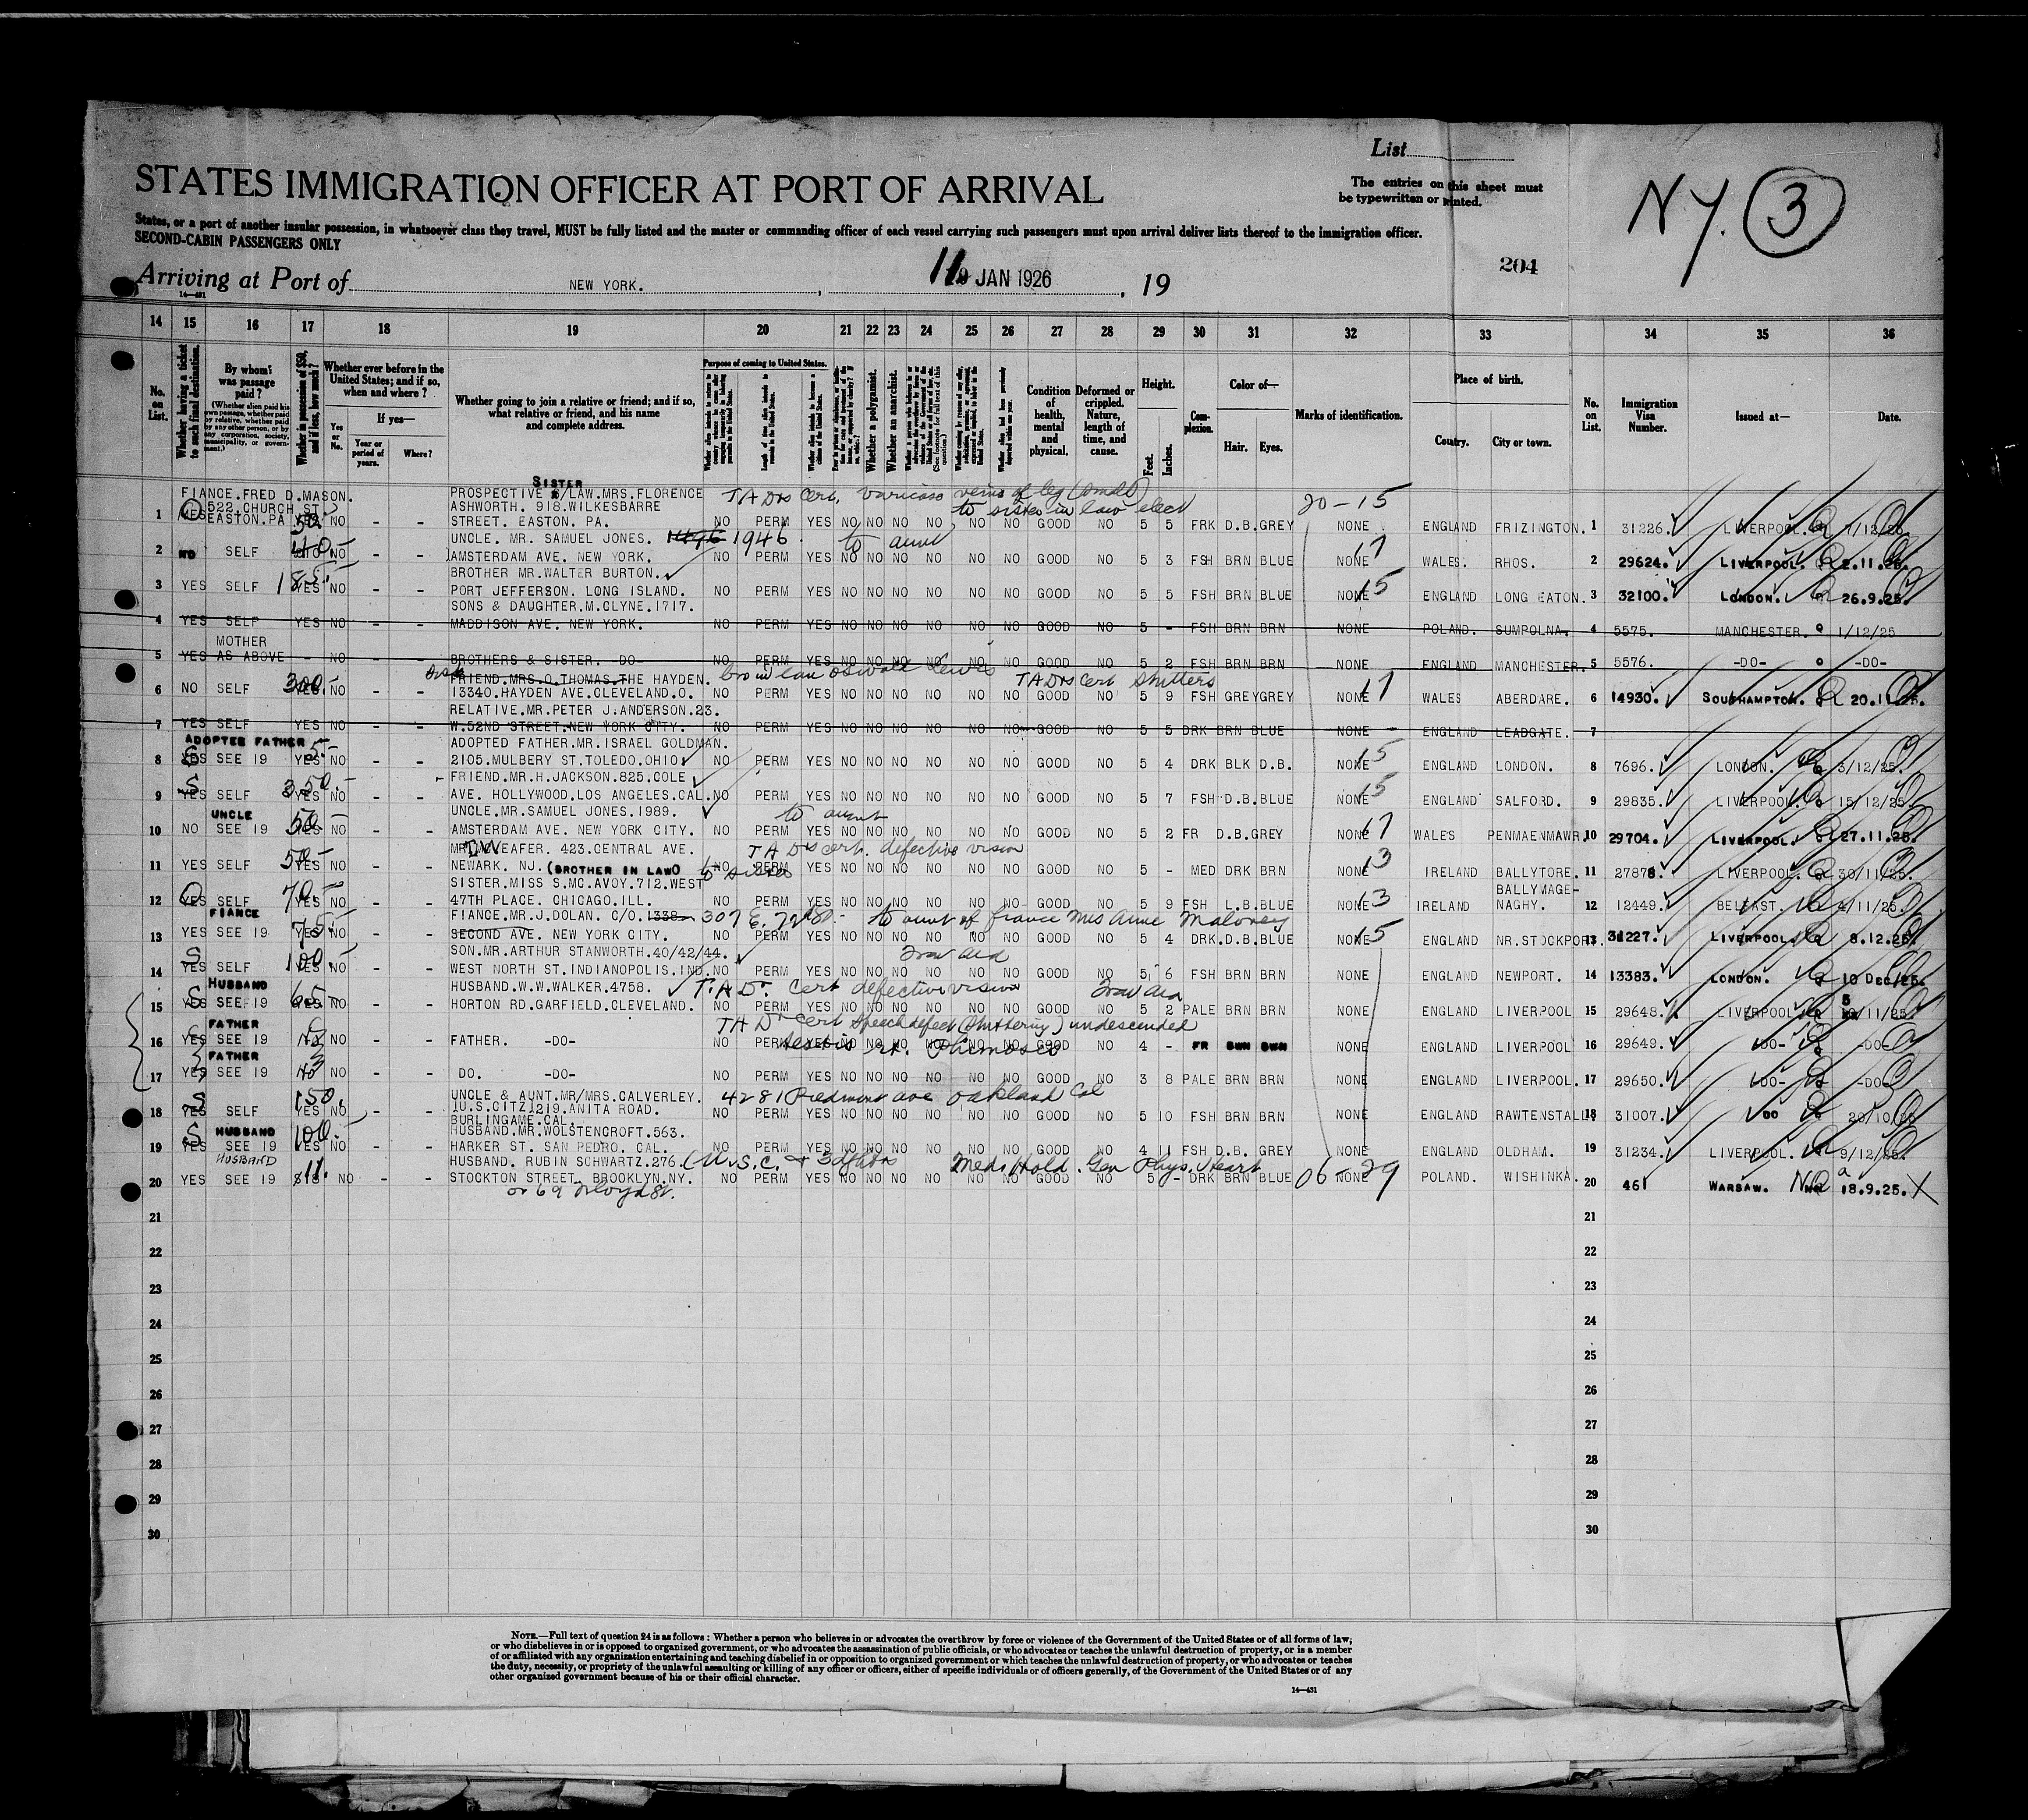 List
STATES IMMIGRATION OFFICER AT PORT OF ARRIVAL
The entries on this sheet must
be typewritten or printed.
NY. 3
States, or a port of another insular possession, in whatsoever class they travel, MUST be fully listed and the master or commanding officer of each vessel carrying such passengers must upon arrival deliver lists thereof to the immigration officer.
SECOND-CABIN PASSENGERS ONLY
204
Arriving at Port of NEW YORK. , 11 JAN 1926 , 19
14—431
14 15 16 17 18 19 20 21 22 23 24 25 26 27 28 29 30 31 32 33 34 35 36
No. on List.
Whether having a ticket to such final destination.
By whom was passage paid?
(Whether alien paid his own passage, whether paid by relative, whether paid by any other person, or by any corporation, society, municipality, or government.)
Whether in possession of $50, and if less, how much?
Whether ever before in the United States; and if so, when and where?
Yes or No.
If yes—
Year or period of years.
Where?
Whether going to join a relative or friend; and if so, what relative or friend, and his name and complete address.
Purpose of coming to United States.
Length of time alien intends to remain in the United States.
Whether a polygamist.
Whether an anarchist.
(See footnote for full text of this question.)
Condition of health, mental and physical.
Deformed or crippled. Nature, length of time, and cause.
Height.
Feet. Inches.
Complexion.
Color of—
Hair. Eyes.
Marks of identification.
Place of birth.
Country. City or town.
No. on List.
Immigration Visa Number.
Issued at—
Date.
SISTER
FIANCE.FRED D.MASON. PROSPECTIVE /LAW.MRS.FLORENCE TA Drs Cert. varicose veins of leg (small) 20-15
522.CHURCH ST. ASHWORTH. 918.WILKESBARRE to sister in law elect
1 YES EASTON.PA YES NO - - STREET. EASTON. PA. NO PERM YES NO NO NO NO NO NO GOOD NO 5 5 FRK D.B. GREY NONE ENGLAND FRIZINGTON. 1 31226. LIVERPOOL. 7/12/25
UNCLE. MR. SAMUEL JONES. 1946 to aunt
2 NO SELF 40 NO - - AMSTERDAM AVE. NEW YORK. NO PERM YES NO NO NO NO NO NO GOOD NO 5 3 FSH BRN BLUE NONE 17 WALES. RHOS. 2 29624. LIVERPOOL. 2.11.25.
BROTHER MR.WALTER BURTON.
3 YES SELF 185 YES NO - - PORT JEFFERSON. LONG ISLAND. NO PERM YES NO NO NO NO NO NO GOOD NO 5 5 FSH BRN BLUE NONE 15 ENGLAND LONG EATON. 3 32100. LONDON. 26.9.25.
SONS & DAUGHTER.M.CLYNE.1717.
4 YES SELF YES NO - - MADDISON AVE. NEW YORK. NO PERM YES NO NO NO NO NO NO GOOD NO 5 - FSH BRN BRN NONE POLAND. SUMPOLNA. 4 5575. MANCHESTER. 1/12/25
MOTHER
5 YES AS ABOVE - NO - - BROTHERS & SISTER. -DO- NO PERM YES NO NO NO NO NO NO GOOD NO 5 2 FSH BRN BRN NONE ENGLAND MANCHESTER. 5 5576. -DO- -DO-
FRIEND.MRS.O.THOMAS.THE HAYDEN. bro in law Oswald Lewis TA Drs cert Stutters
6 NO SELF 300 YES. NO - - 13340.HAYDEN AVE.CLEVELAND.O. NO PERM YES NO NO NO NO NO NO GOOD NO 5 9 FSH GREY GREY NONE 17 WALES ABERDARE. 6 14930. SOUTHAMPTON. 20.11.25.
RELATIVE.MR.PETER J.ANDERSON.23.
7 YES SELF YES NO - - W.52ND STREET.NEW YORK CITY. NO PERM YES NO NO NO NO NO NO GOOD NO 5 5 DRK BRN BLUE NONE ENGLAND LEADGATE. 7
ADOPTED FATHER 5- ADOPTED FATHER.MR.ISRAEL GOLDMAN.
8 YES SEE 19 YES NO - - 2105.MULBERY ST.TOLEDO.OHIO NO PERM YES NO NO NO NO NO NO GOOD NO 5 4 DRK BLK D.B. NONE 15 ENGLAND LONDON. 8 7696. LONDON. 3/12/25.
S 350.- FRIEND.MR.H.JACKSON.825.COLE
9 YES SELF YES NO - - AVE. HOLLYWOOD.LOS ANGELES.CAL. NO PERM YES NO NO NO NO NO NO GOOD NO 5 7 FSH D.B. BLUE NONE 15 ENGLAND SALFORD. 9 29835. LIVERPOOL. 15/12/25
UNCLE UNCLE.MR.SAMUEL JONES.1989. to aunt
10 NO SEE 19 50 YES NO - - AMSTERDAM AVE. NEW YORK CITY. NO PERM YES NO NO NO NO NO NO GOOD NO 5 2 FR D.B. GREY NONE 17 WALES PENMAENMAWR. 10 29704. LIVERPOOL. 27.11.25.
423.CENTRAL AVE. TA Drs cert. defective vision
11 YES SELF 50- YES NO - - NEWARK. NJ. (BROTHER IN LAW) to sister NO PERM YES NO NO NO NO NO NO GOOD NO 5 - MED DRK BRN NONE 13 IRELAND BALLYTORE. 11 27878. LIVERPOOL. 30/11/25.
SISTER.MISS S.MC.AVOY.712.WEST BALLYMAGE-
12 YES SELF 70- YES NO - - 47TH PLACE. CHICAGO.ILL. NO PERM YES NO NO NO NO NO NO GOOD NO 5 9 FSH L.B. BLUE NONE 13 IRELAND NAGHY. 12 12449. BELFAST. 4/11/25.
FIANCE FIANCE.MR.J.DOLAN. C/O.1338 307 E. to aunt of fiance Mrs Anne Maloney
13 YES SEE 19 75- YES NO - - SECOND AVE. NEW YORK CITY. NO PERM YES NO NO NO NO NO NO GOOD NO 5 4 DRK. D.B. BLUE NONE 15 ENGLAND NR.STOCKPORT. 13 31227. LIVERPOOL. 8.12.25.
S SON.MR.ARTHUR STANWORTH.40/42/44. Trav Aid
14 YES SELF 100- YES NO - - WEST NORTH ST.INDIANOPOLIS.IND. NO PERM YES NO NO NO NO NO NO GOOD NO 5 6 FSH BRN BRN NONE ENGLAND NEWPORT. 14 13383. LONDON. 10 DEC/25.
HUSBAND HUSBAND.W.W.WALKER.4758. T.A Dr. cert defective vision Trav Aid
15 YES SEE 19 65- YES NO - - HORTON RD.GARFIELD.CLEVELAND. NO PERM YES NO NO NO NO NO NO GOOD NO 5 2 PALE BRN BRN NONE ENGLAND LIVERPOOL 15 29648. LIVERPOOL. 5/11/25.
FATHER TA Dr cert Speech defect (Stuttering) undescended
16 YES SEE 19 NO - - FATHER. -DO- NO PERM YES NO NO NO NO NO NO GOOD NO 4 - FR BWN BWN NONE ENGLAND LIVERPOOL 16 29649. -DO- -DO-
testis rt. Phimosis
FATHER
17 YES SEE 19 NO - - DO. -DO- NO PERM YES NO NO NO NO NO NO GOOD NO 3 8 PALE BRN BRN NONE ENGLAND LIVERPOOL. 17 29650. -DO- -DO-
S 150. UNCLE & AUNT.MR/MRS.CALVERLEY. 4281 Piedmont ave Oakland Cal
18 YES SELF YES NO - - (U.S.CITZ)219.ANITA ROAD. NO PERM YES NO NO NO NO NO NO GOOD NO 5 10 FSH BRN BRN NONE ENGLAND RAWTENSTALL 18 31007. DO 20/10/25
BURLINGAME.CAL.
S HUSBAND HUSBAND.MR.WOLSTENCROFT.563.
19 YES SEE 19 100.- YES NO - - HARKER ST. SAN PEDRO. CAL. NO PERM YES NO NO NO NO NO NO GOOD NO 4 11 FSH D.B. GREY NONE ENGLAND OLDHAM. 19 31234. LIVERPOOL. 9/12/25.
HUSBAND HUSBAND. RUBIN SCHWARTZ.276. (U.S.C. Meds Hold. Gen Phys. Heart
20 YES SEE 19 11. NO - - STOCKTON STREET. BROOKLYN.NY. NO PERM YES NO NO NO NO NO NO GOOD NO 5 - DRK BRN BLUE 06 NONE 29 POLAND. WISHINKA. 20 461 WARSAW. 18.9.25. X
or 69 Floyd St.
21 21
22 22
23 23
24 24
25 25
26 26
27 27
28 28
29 29
30 30
NOTE.—Full text of question 24 is as follows: Whether a person who believes in or advocates the overthrow by force or violence of the Government of the United States or of all forms of law;
or who disbelieves in or is opposed to organized government, or who advocates the assassination of public officials, or who advocates or teaches the unlawful destruction of property, or is a member
of or affiliated with any organization entertaining and teaching disbelief in or opposition to organized government or which teaches the unlawful destruction of property, or who advocates or teaches
the duty, necessity, or propriety of the unlawful assaulting or killing of any officer or officers, either of specific individuals or of officers generally, of the Government of the United States or of any
other organized government because of his or their official character.
14—431